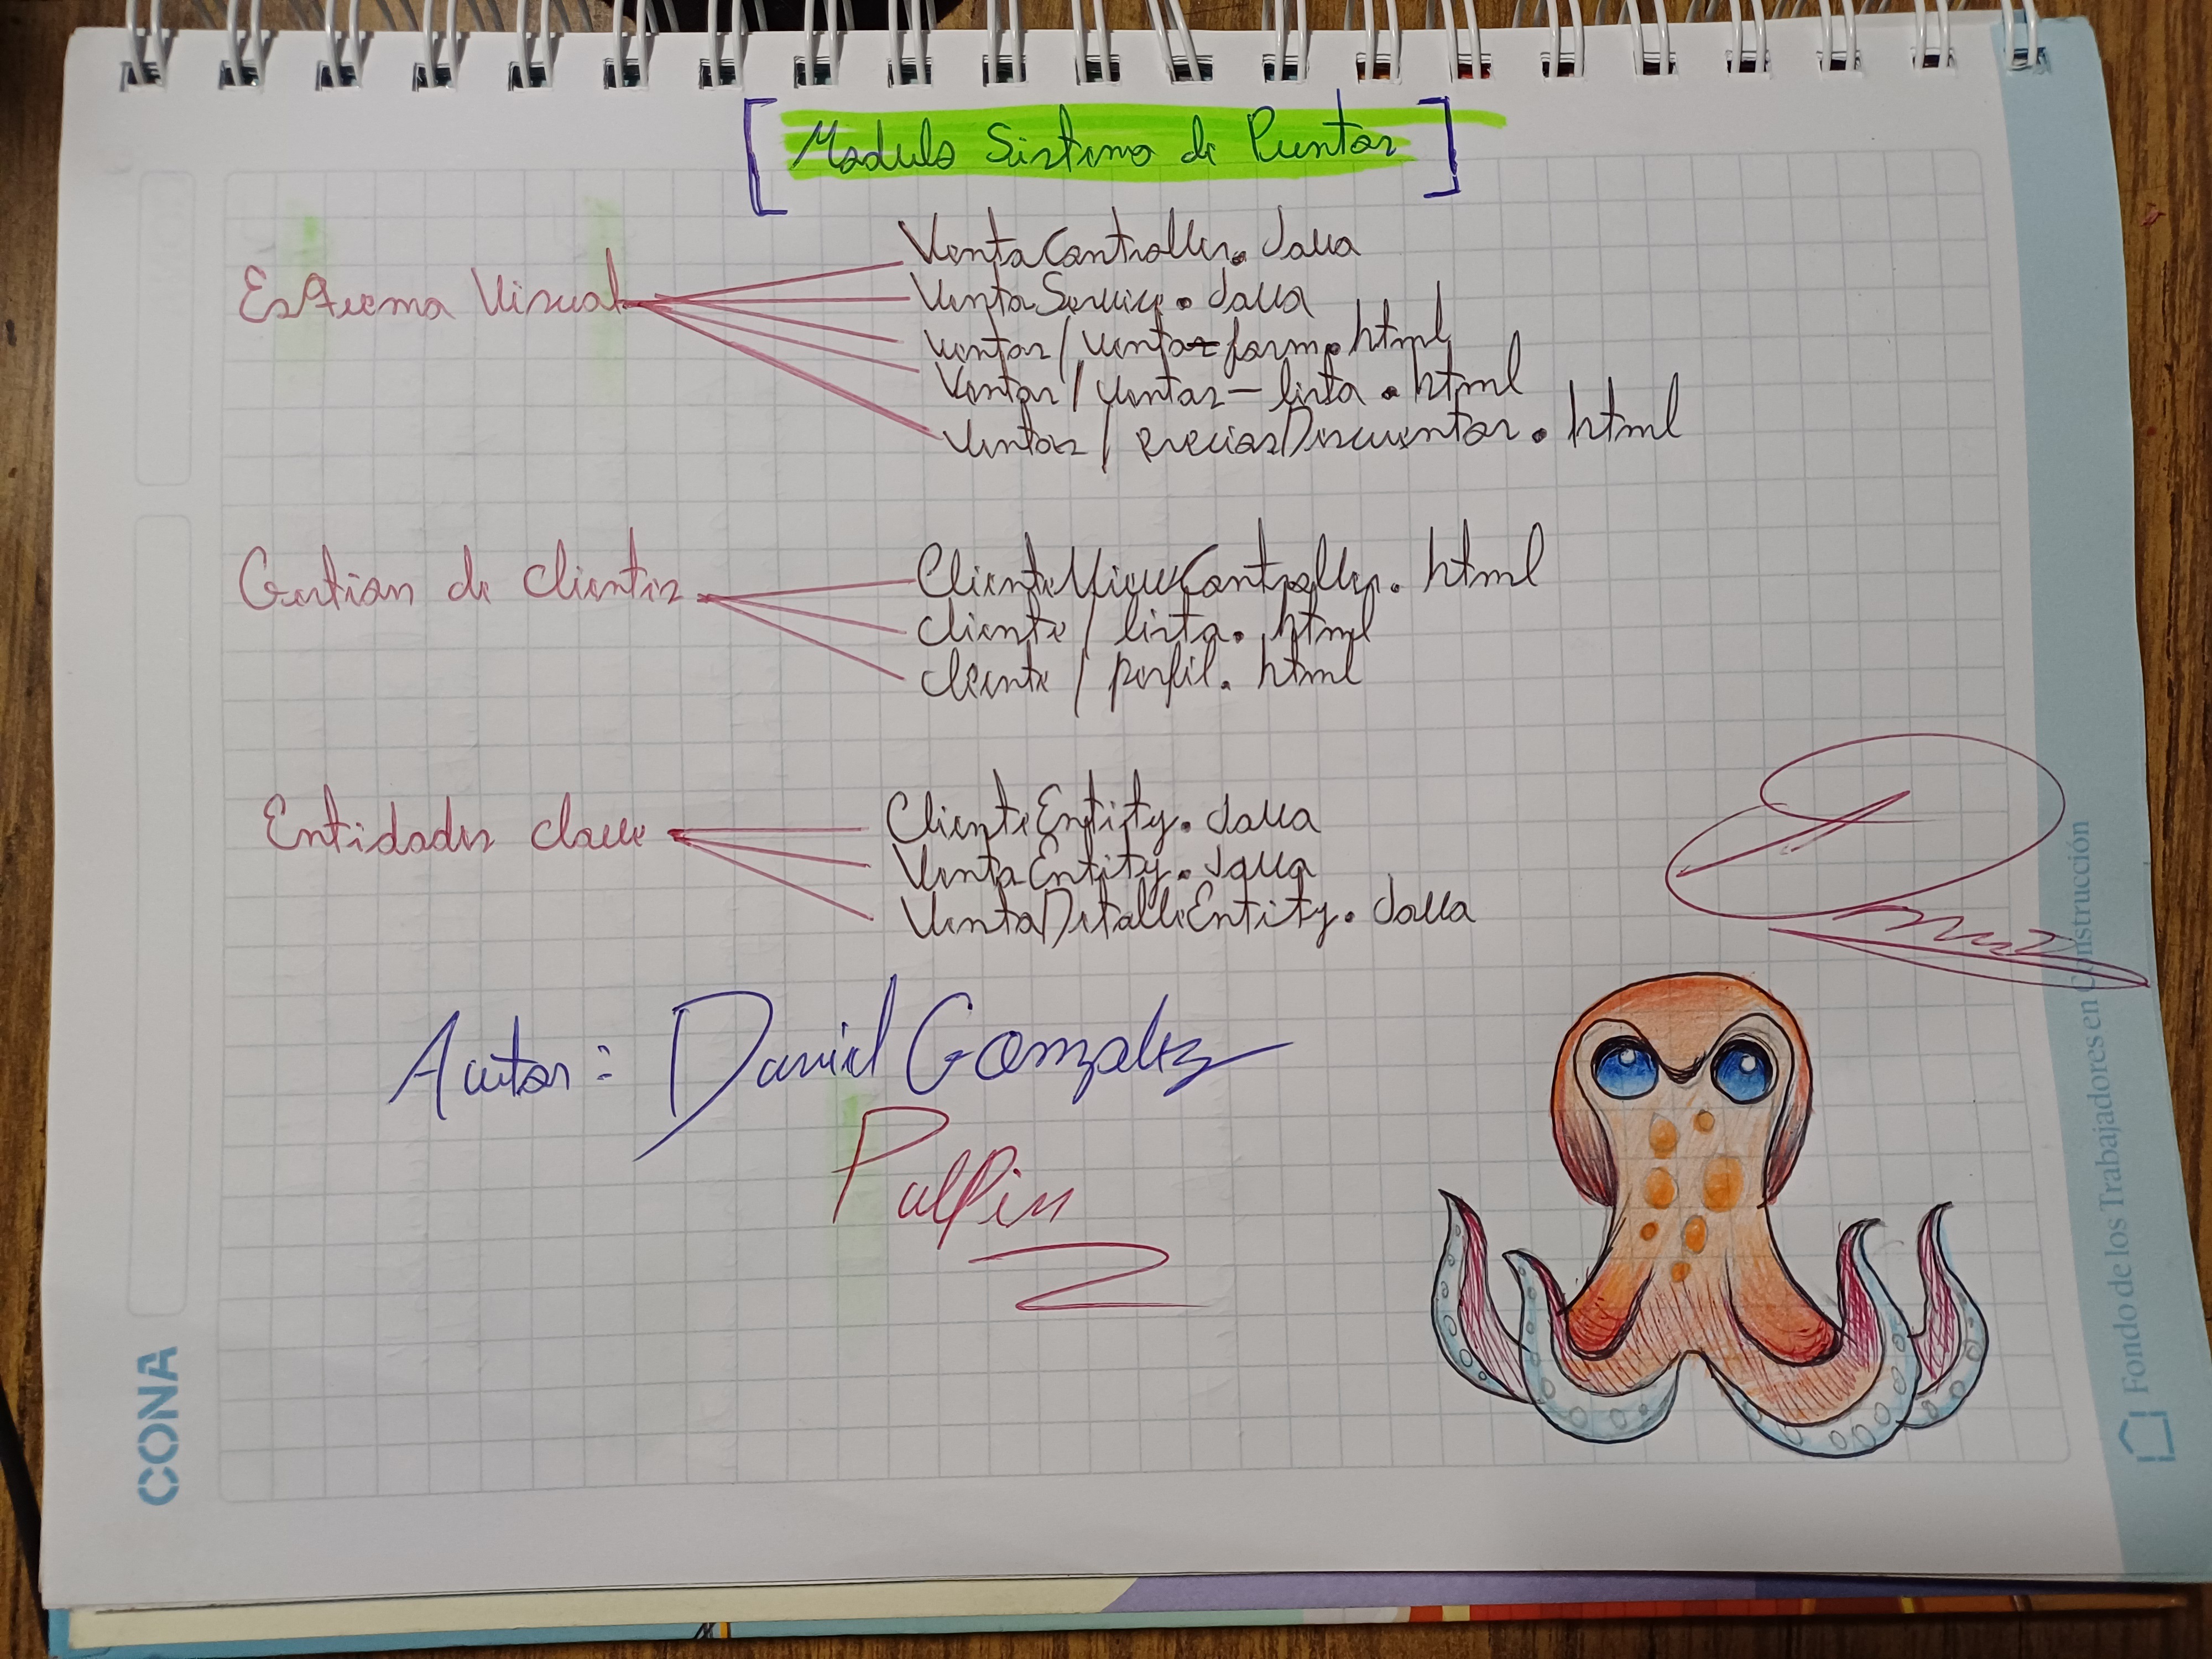 [Modulo Sistema de Puntos]
Esquema Visual
VentaController.Java
VentaService.Java
ventas/ventas-form.html
Ventas/ventas-lista.html
Ventas/preciosDescuentos.html
Gestion de clientes
ClienteViewController.html
cliente/lista.html
cliente/perfil.html
Entidades clave
ClienteEntity.Java
VentaEntity.Java
VentaDetalleEntity.Java
Autor: Daniel Gonzalez
Pulpin
CONA
Fondo de los Trabajadores en Construcción